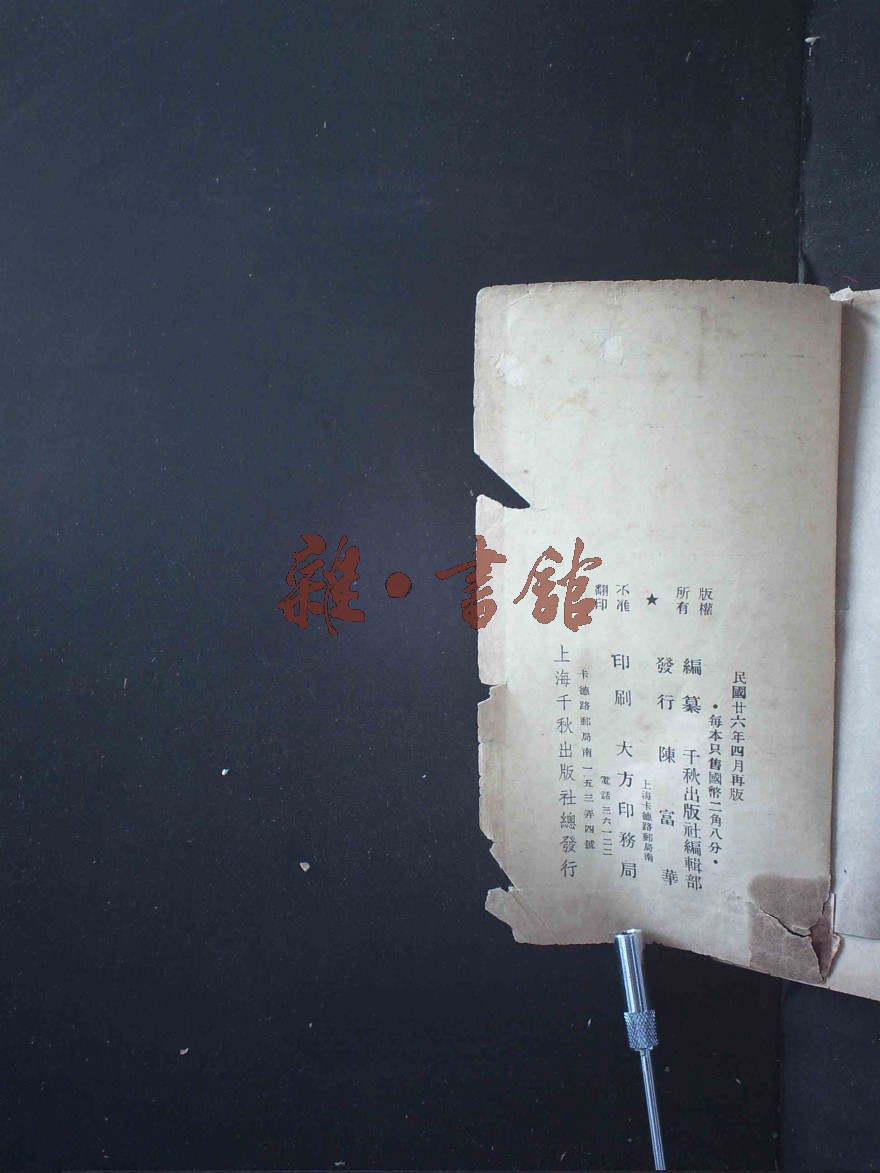 民國廿六年四月再版
•每本只售國幣二角八分•
版權
所有
★
不准
翻印
編纂 千秋出版社編輯部
發行 陳富華
上海卡德路郵局南
印刷 大方印務局
電話三六一二二
卡德路郵局南一五三弄四號
上海千秋出版社總發行
雜•書館